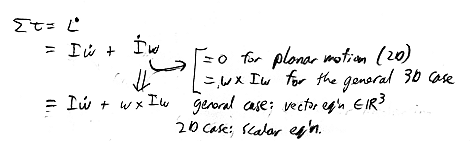 Στ = L̇
= Iω̇ + İω
= 0 for planar motion (2D)
= ω × Iω for the general 3D case
= Iω̇ + ω × Iω general case: vector eq'n ∈ ℝ³
2D case: scalar eq'n.